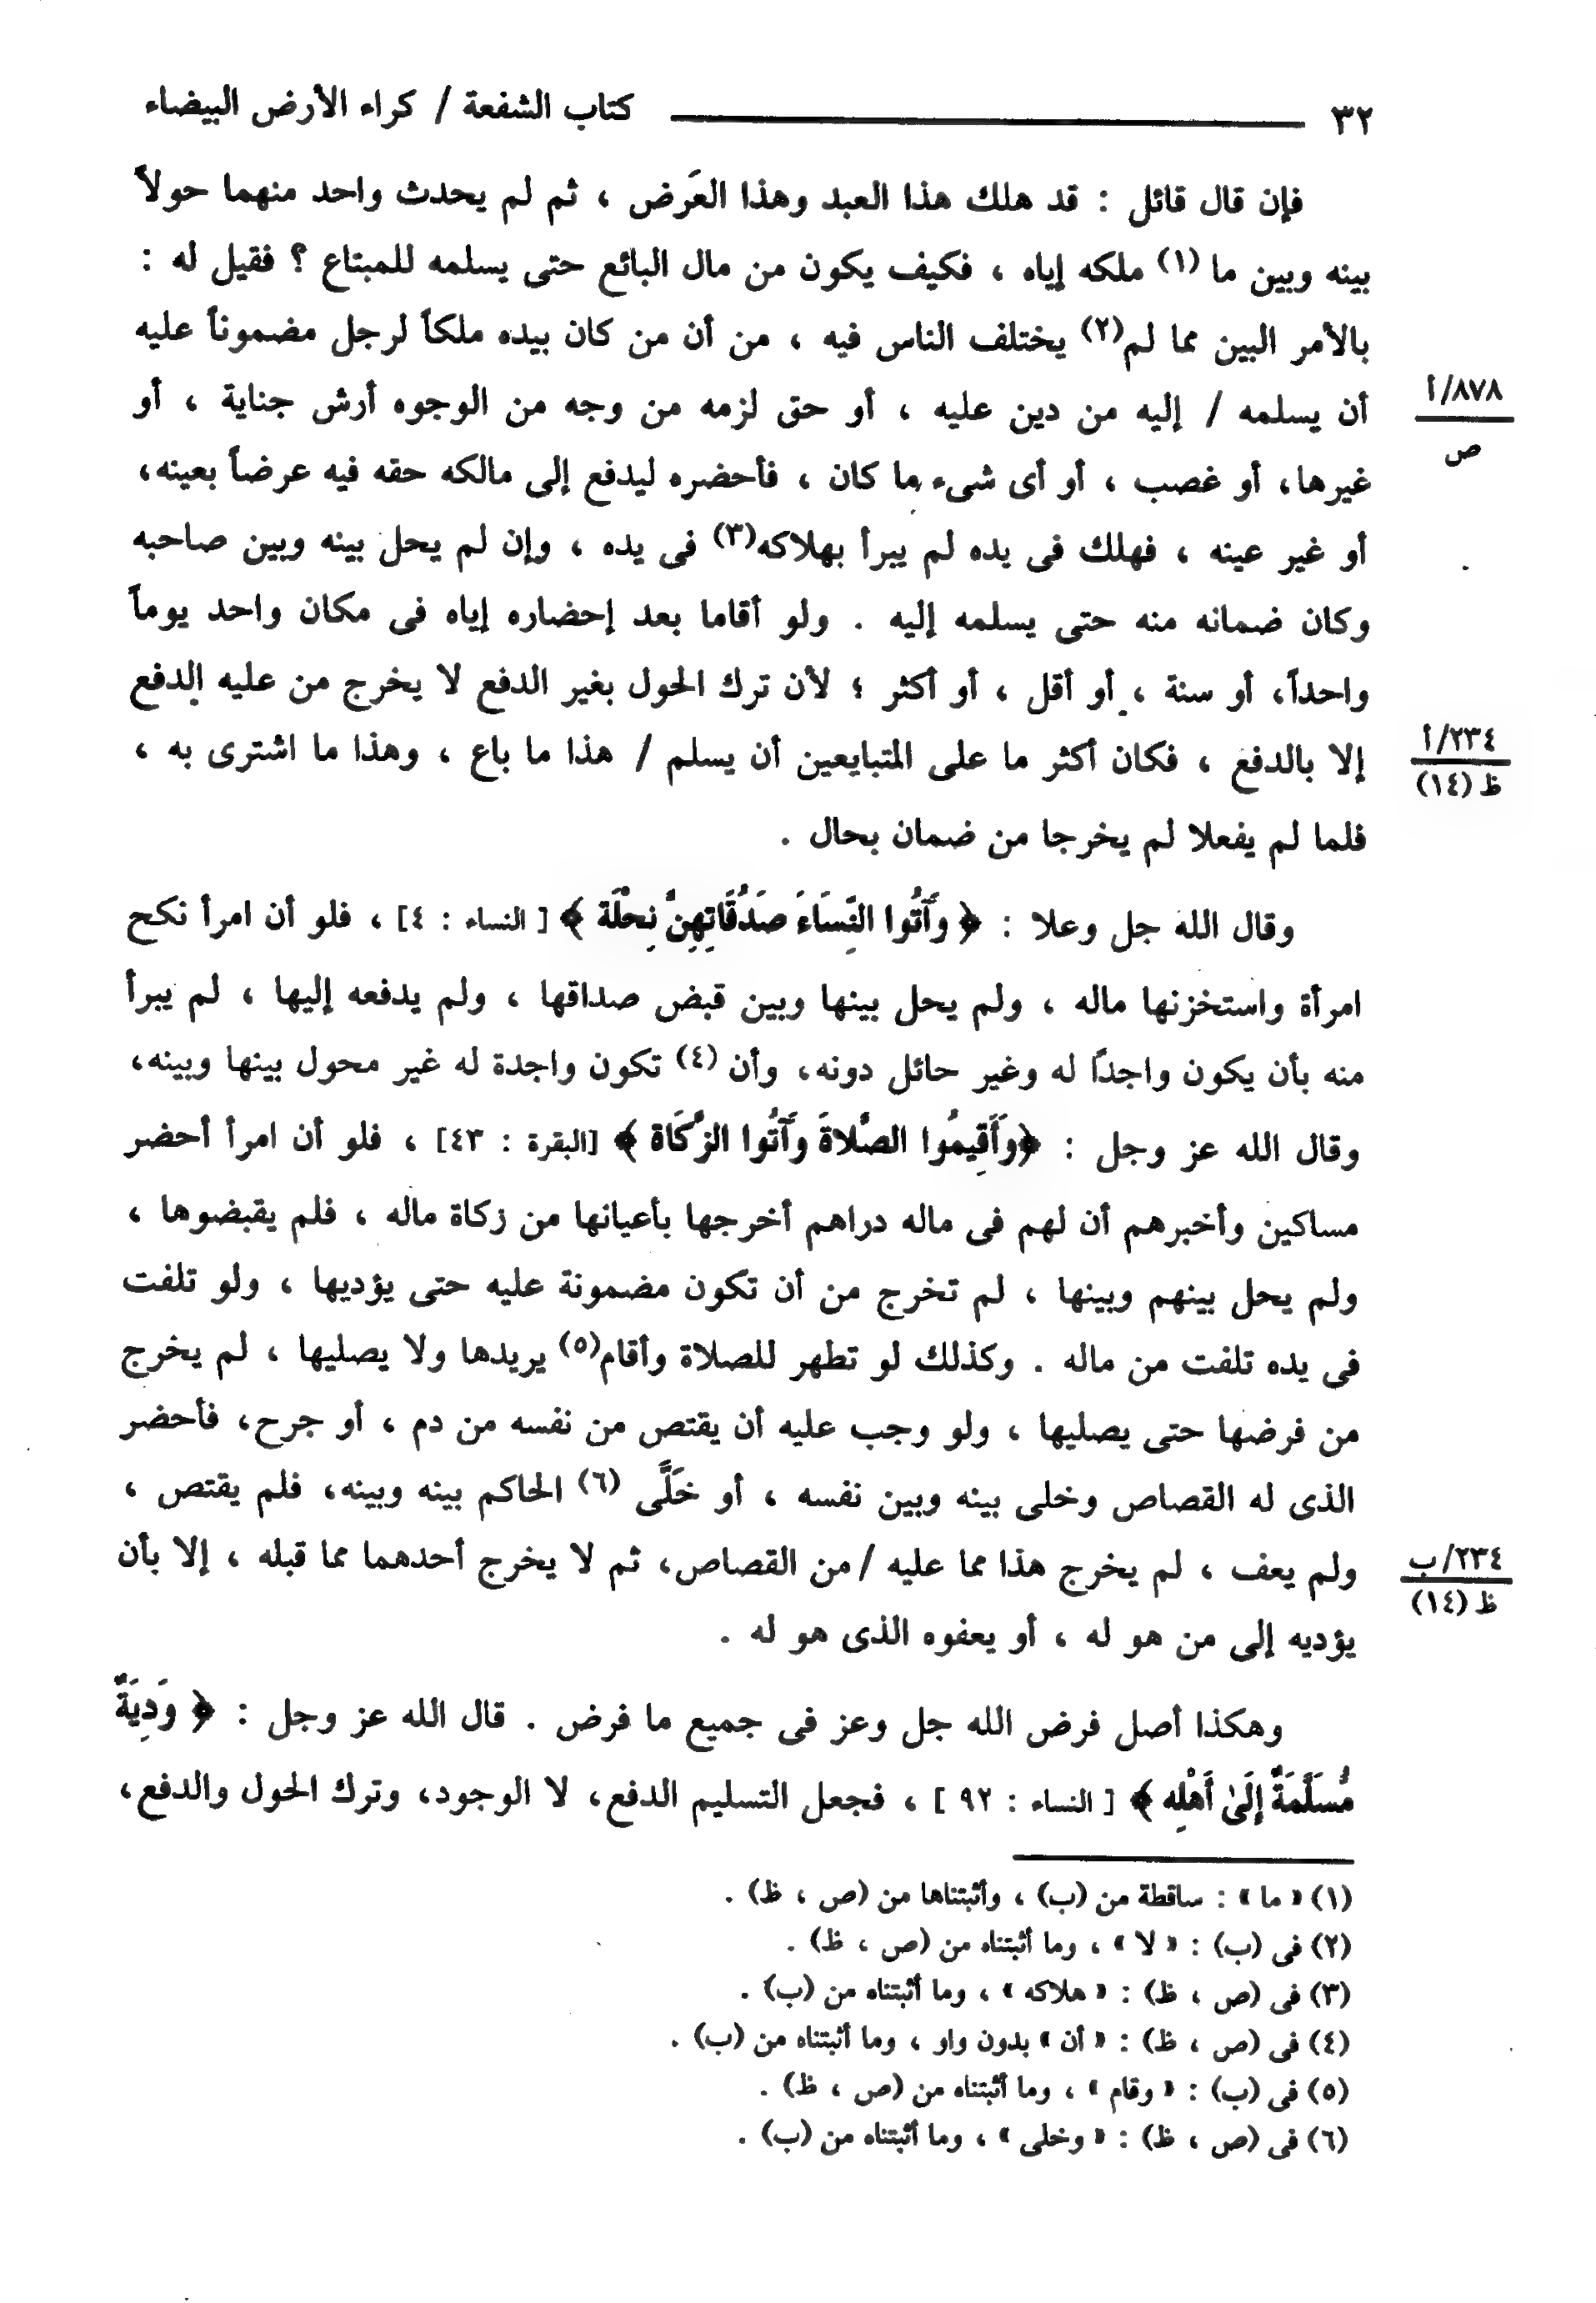 ٣٢ كتاب الشفعة / كراء الأرض البيضاء
فإن قال قائل : قد هلك هذا العبد وهذا العَرض ، ثم لم يحدث واحد منهما حولاً
بينه وبين ما (١) ملكه إياه ، فكيف يكون من مال البائع حتى يسلمه للمبتاع ؟ فقيل له :
بالأمر البين مما لم(٢) يختلف الناس فيه ، من أن من كان بيده ملكاً لرجل مضموناً عليه
أن يسلمه / إليه من دين عليه ، أو حق لزمه من وجه من الوجوه أرش جناية ، أو
٨٧٨/أ
ص
غيرها، أو غصب ، أو أى شىء ما كان ، فأحضره ليدفع إلى مالكه حقه فيه عرضاً بعينه،
أو غير عينه ، فهلك فى يده لم يبرأ بهلاكه(٣) فى يده ، وإن لم يحل بينه وبين صاحبه
وكان ضمانه منه حتى يسلمه إليه . ولو أقاما بعد إحضاره إياه فى مكان واحد يوماً
واحداً، أو سنة ، أو أقل ، أو أكثر ؛ لأن ترك الحول بغير الدفع لا يخرج من عليه الدفع
إلا بالدفع ، فكان أكثر ما على المتبايعين أن يسلم / هذا ما باع ، وهذا ما اشترى به ،
٢٣٤/أ
ظ (١٤)
فلما لم يفعلا لم يخرجا من ضمان بحال .
وقال الله جل وعلا : ﴿ وَآتُوا النِّسَاءَ صَدُقَاتِهِنَّ نِحْلَة ﴾ [ النساء : ٤] ، فلو أن امرأ نكح
امرأة واستخزنها ماله ، ولم يحل بينها وبين قبض صداقها ، ولم يدفعه إليها ، لم يبرأ
منه بأن يكون واجدًا له وغير حائل دونه، وأن (٤) تكون واجدة له غير محول بينها وبينه،
وقال الله عز وجل : ﴿وَأَقِيمُوا الصَّلاةَ وَآتُوا الزَّكَاة ﴾ [البقرة : ٤٣] ، فلو أن امرأ أحضر
مساكين وأخبرهم أن لهم فى ماله دراهم أخرجها بأعيانها من زكاة ماله ، فلم يقبضوها ،
ولم يحل بينهم وبينها ، لم تخرج من أن تكون مضمونة عليه حتى يؤديها ، ولو تلفت
فى يده تلفت من ماله . وكذلك لو تطهر للصلاة وأقام(٥) يريدها ولا يصليها ، لم يخرج
من فرضها حتى يصليها ، ولو وجب عليه أن يقتص من نفسه من دم ، أو جرح، فأحضر
الذى له القصاص وخلى بينه وبين نفسه ، أو خَلَّى (٦) الحاكم بينه وبينه، فلم يقتص ،
ولم يعف ، لم يخرج هذا مما عليه /من القصاص، ثم لا يخرج أحدهما مما قبله ، إلا بأن
٢٣٤/ب
ظ (١٤)
يؤديه إلى من هو له ، أو يعفوه الذى هو له .
وهكذا أصل فرض الله جل وعز فى جميع ما فرض . قال الله عز وجل : ﴿ وَدِيَةٌ
مُّسَلَّمَةٌ إِلَىٰ أَهْلِه ﴾ [ النساء : ٩٢ ] ، فجعل التسليم الدفع، لا الوجود، وترك الحول والدفع،
(١) « ما » : ساقطة من (ب) ، وأثبتناها من (ص ، ظ) .
(٢) فى (ب) : « لا » ، وما أثبتناه من (ص ، ظ) .
(٣) فى (ص ، ظ) : « هلاكه » ، وما أثبتناه من (ب) .
(٤) فى (ص ، ظ) : « أن » بدون واو ، وما أثبتناه من (ب) .
(٥) فى (ب) : « وقام » ، وما أثبتناه من (ص ، ظ) .
(٦) فى (ص ، ظ) : « وخلى » ، وما أثبتناه من (ب) .